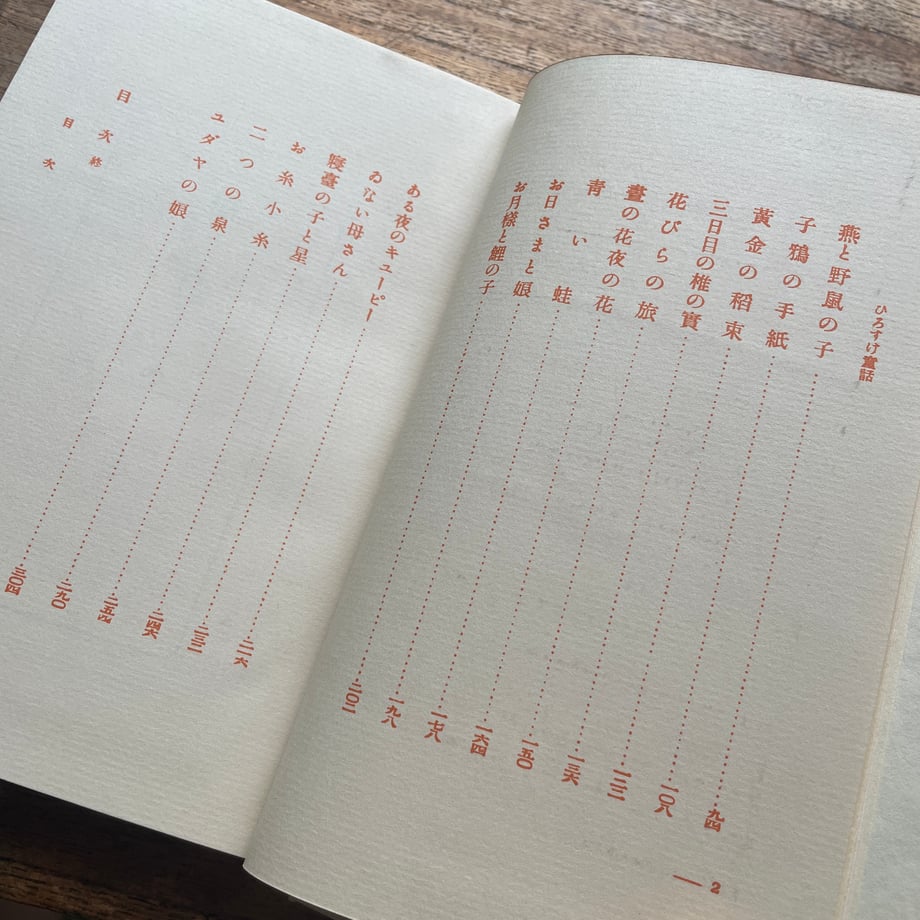 ひろすけ童話
燕と野鼠の子……九四
子鴉の手紙……一〇八
黃金の稻束……一二二
三日目の椎の實……一三六
花びらの旅……一五〇
晝の花夜の花……一六四
青い蛙……一七八
お日さまと娘……一九八
お月樣と鯉の子……
— 2
ある夜のキューピー……二一六
ゐない母さん……
寢臺の子と星……二四六
お糸小糸……二五四
二つの泉……二九〇
ユダヤの娘……三〇四
目次終
目次